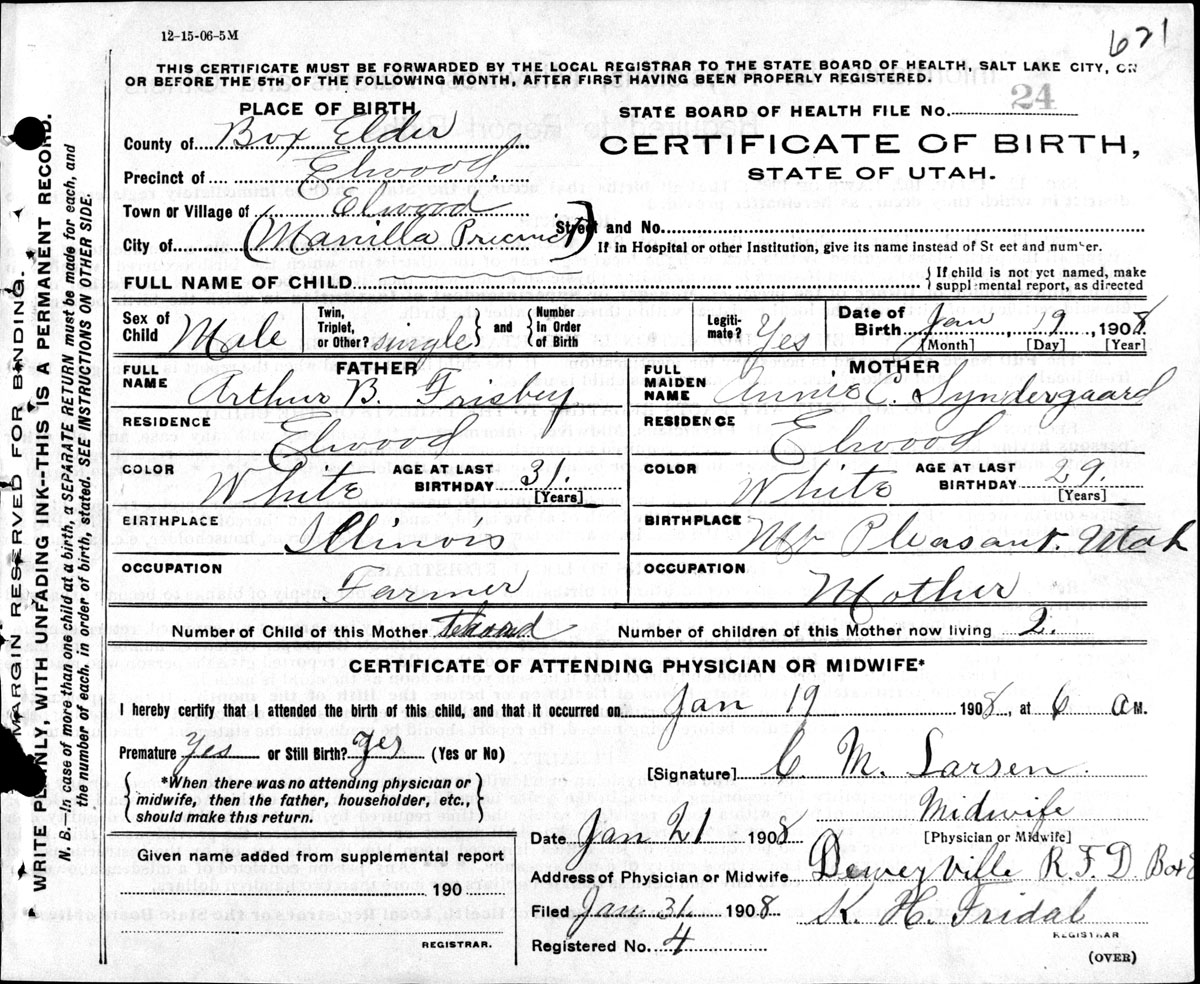 12-15-06-5M
621
THIS CERTIFICATE MUST BE FORWARDED BY THE LOCAL REGISTRAR TO THE STATE BOARD OF HEALTH, SALT LAKE CITY, ON
OR BEFORE THE 5TH OF THE FOLLOWING MONTH, AFTER FIRST HAVING BEEN PROPERLY REGISTERED.
PLACE OF BIRTH,
County of Box Elder
Precinct of Elwood.
Town or Village of Elwood
City of (Manilla Precinct)
STATE BOARD OF HEALTH FILE No. 24
CERTIFICATE OF BIRTH,
STATE OF UTAH.
Street and No.
If in Hospital or other Institution, give its name instead of St eet and number.
FULL NAME OF CHILD.
If child is not yet named, make
supplemental report, as directed
Sex of Child Male
Twin, Triplet, or Other? single
and
Number In Order of Birth
Legiti- mate? Yes
Date of Birth Jan 19 1908
[Month] [Day] [Year]
FATHER
FULL NAME Arthur B. Frisbey
RESIDENCE Elwood
COLOR White AGE AT LAST BIRTHDAY 31.
[Years]
BIRTHPLACE Illinois
OCCUPATION Farmer
MOTHER
FULL MAIDEN NAME Annie C. Syndergaard
RESIDENCE Elwood
COLOR White AGE AT LAST BIRTHDAY 29.
[Years]
BIRTHPLACE Mt Pleasant. Utah
OCCUPATION Mother
Number of Child of this Mother
Number of children of this Mother now living 2.
CERTIFICATE OF ATTENDING PHYSICIAN OR MIDWIFE*
I hereby certify that I attended the birth of this child, and that it occurred on Jan 19 1908, at 6 a M.
Premature yes or Still Birth? yes (Yes or No)
*When there was no attending physician or
midwife, then the father, householder, etc.,
should make this return.
[Signature] C M. Larsen
Midwife
[Physician or Midwife]
Date Jan 21 1908
Given name added from supplemental report
190
REGISTRAR.
Address of Physician or Midwife Deweyville R.F.D Box 8
Filed Jan 31 1908 K. H. Fridal
REGISTRAR
Registered No. 4
(OVER)
MARGIN RESERVED FOR BINDING.
WRITE PLAINLY, WITH UNFADING INK--THIS IS A PERMANENT RECORD.
N. B.--In case of more than one child at a birth, a SEPARATE RETURN must be made for each, and
the number of each, in order of birth, stated. SEE INSTRUCTIONS ON OTHER SIDE.